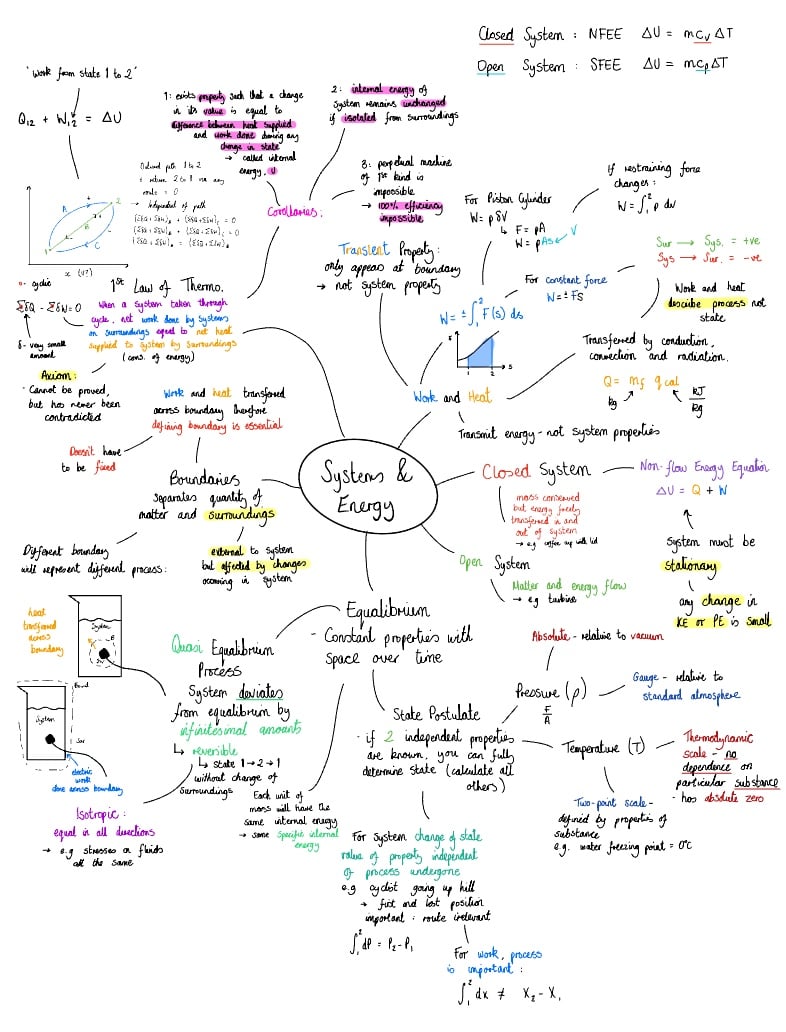 Closed System : NFEE ΔU = mcvΔT
Open System : SFEE ΔU = mcpΔT
"Work from state 1 to 2"
Q12 + W12 = ΔU
1: exists property such that a change
in its value is equal to
difference between heat supplied
and work done during any
change in state
→ called internal
energy, U
2: internal energy of
system remains unchanged
if isolated from surroundings
3: perpetual machine
of 1st kind is
impossible
→ 100% efficiency
impossible
Corollaries:
path 1 to 2
return 2 to 1 via any
route = 0
→ Independent of path
(ΣδQ + ΣδW)A + (ΣδQ + ΣδW)C = 0
(ΣδQ + ΣδW)B + (ΣδQ + ΣδW)C = 0
(ΣδQ + ΣδW)A = (ΣδQ + ΣδW)B
A
B
C
1
2
x (V?)
o - cyclic
ΣδQ - ΣδW = 0
δ - very small
amount
1st Law of Thermo.
When a system taken through
cycle, net work done by systems
on surroundings equal to net heat
supplied to system by surroundings
(cons. of energy)
Axiom:
· Cannot be proved,
but has never been
contradicted
Transient Property:
only appears at boundary
→ not system property
For Piston Cylinder
W = p δV
↳ F = pA
W = pAs ← V
If restraining force
changes:
W = ∫₁² p dv
For constant force
W = ± Fs
W = ± ∫₁² F(s) ds
F
1 2 s
Sur → Sys. = +ve
Sys → Sur. = -ve
Work and heat
describe process not
state
Transferred by conduction,
convection and radiation.
Q = mf qcal
kg
kJ/kg
Work and Heat
Transmit energy - not system properties
Work and heat transferred
across boundary therefore
defining boundary is essential
Doesn't have
to be fixed
Boundaries
separates quantity of
matter and surroundings
external to system
but affected by changes
occuring in system
Different boundary
will represent different process:
Systems &
Energy
Closed System
mass conserved
but energy freely
transferred in and
out of system
→ e.g coffee cup with lid
Non-flow Energy Equation
ΔU = Q + W
System must be
stationary
any change in
KE or PE is small
Open System
Matter and energy flow
→ e.g turbine
heat
transferred
across
boundary
System
B
Sur
Bound
System
Sur
electric
work
done across boundary
Equalibrium
- Constant properties with
space over time
Quasi Equalibrium
Process
System deviates
from equalibrium by
infinitesimal amounts
↳ reversible
↳ state 1 → 2 → 1
without change of
surroundings
Isotropic:
equal in all directions
→ e.g stresses in fluids
all the same
Each unit of
mass will have the
same internal energy
→ same specific internal
energy
State Postulate
· if 2 independent properties
are known, you can fully
determine state (calculate all
others)
Pressure (p)
F/A
Absolute - relative to vacuum
Gauge - relative to
standard atmosphere
Temperature (T)
Thermodynamic
scale - no
dependence on
particular substance
· has absolute zero
Two-point scale -
defined by properties of
substance
e.g. water freezing point = 0°C
For system change of state
value of property independent
of process undergone
e.g cyclist going up hill
→ first and last position
important : route irrelevant
∫₁² dP = P2 - P1
For work, process
is important :
∫₁² dx ≠ X2 - X1